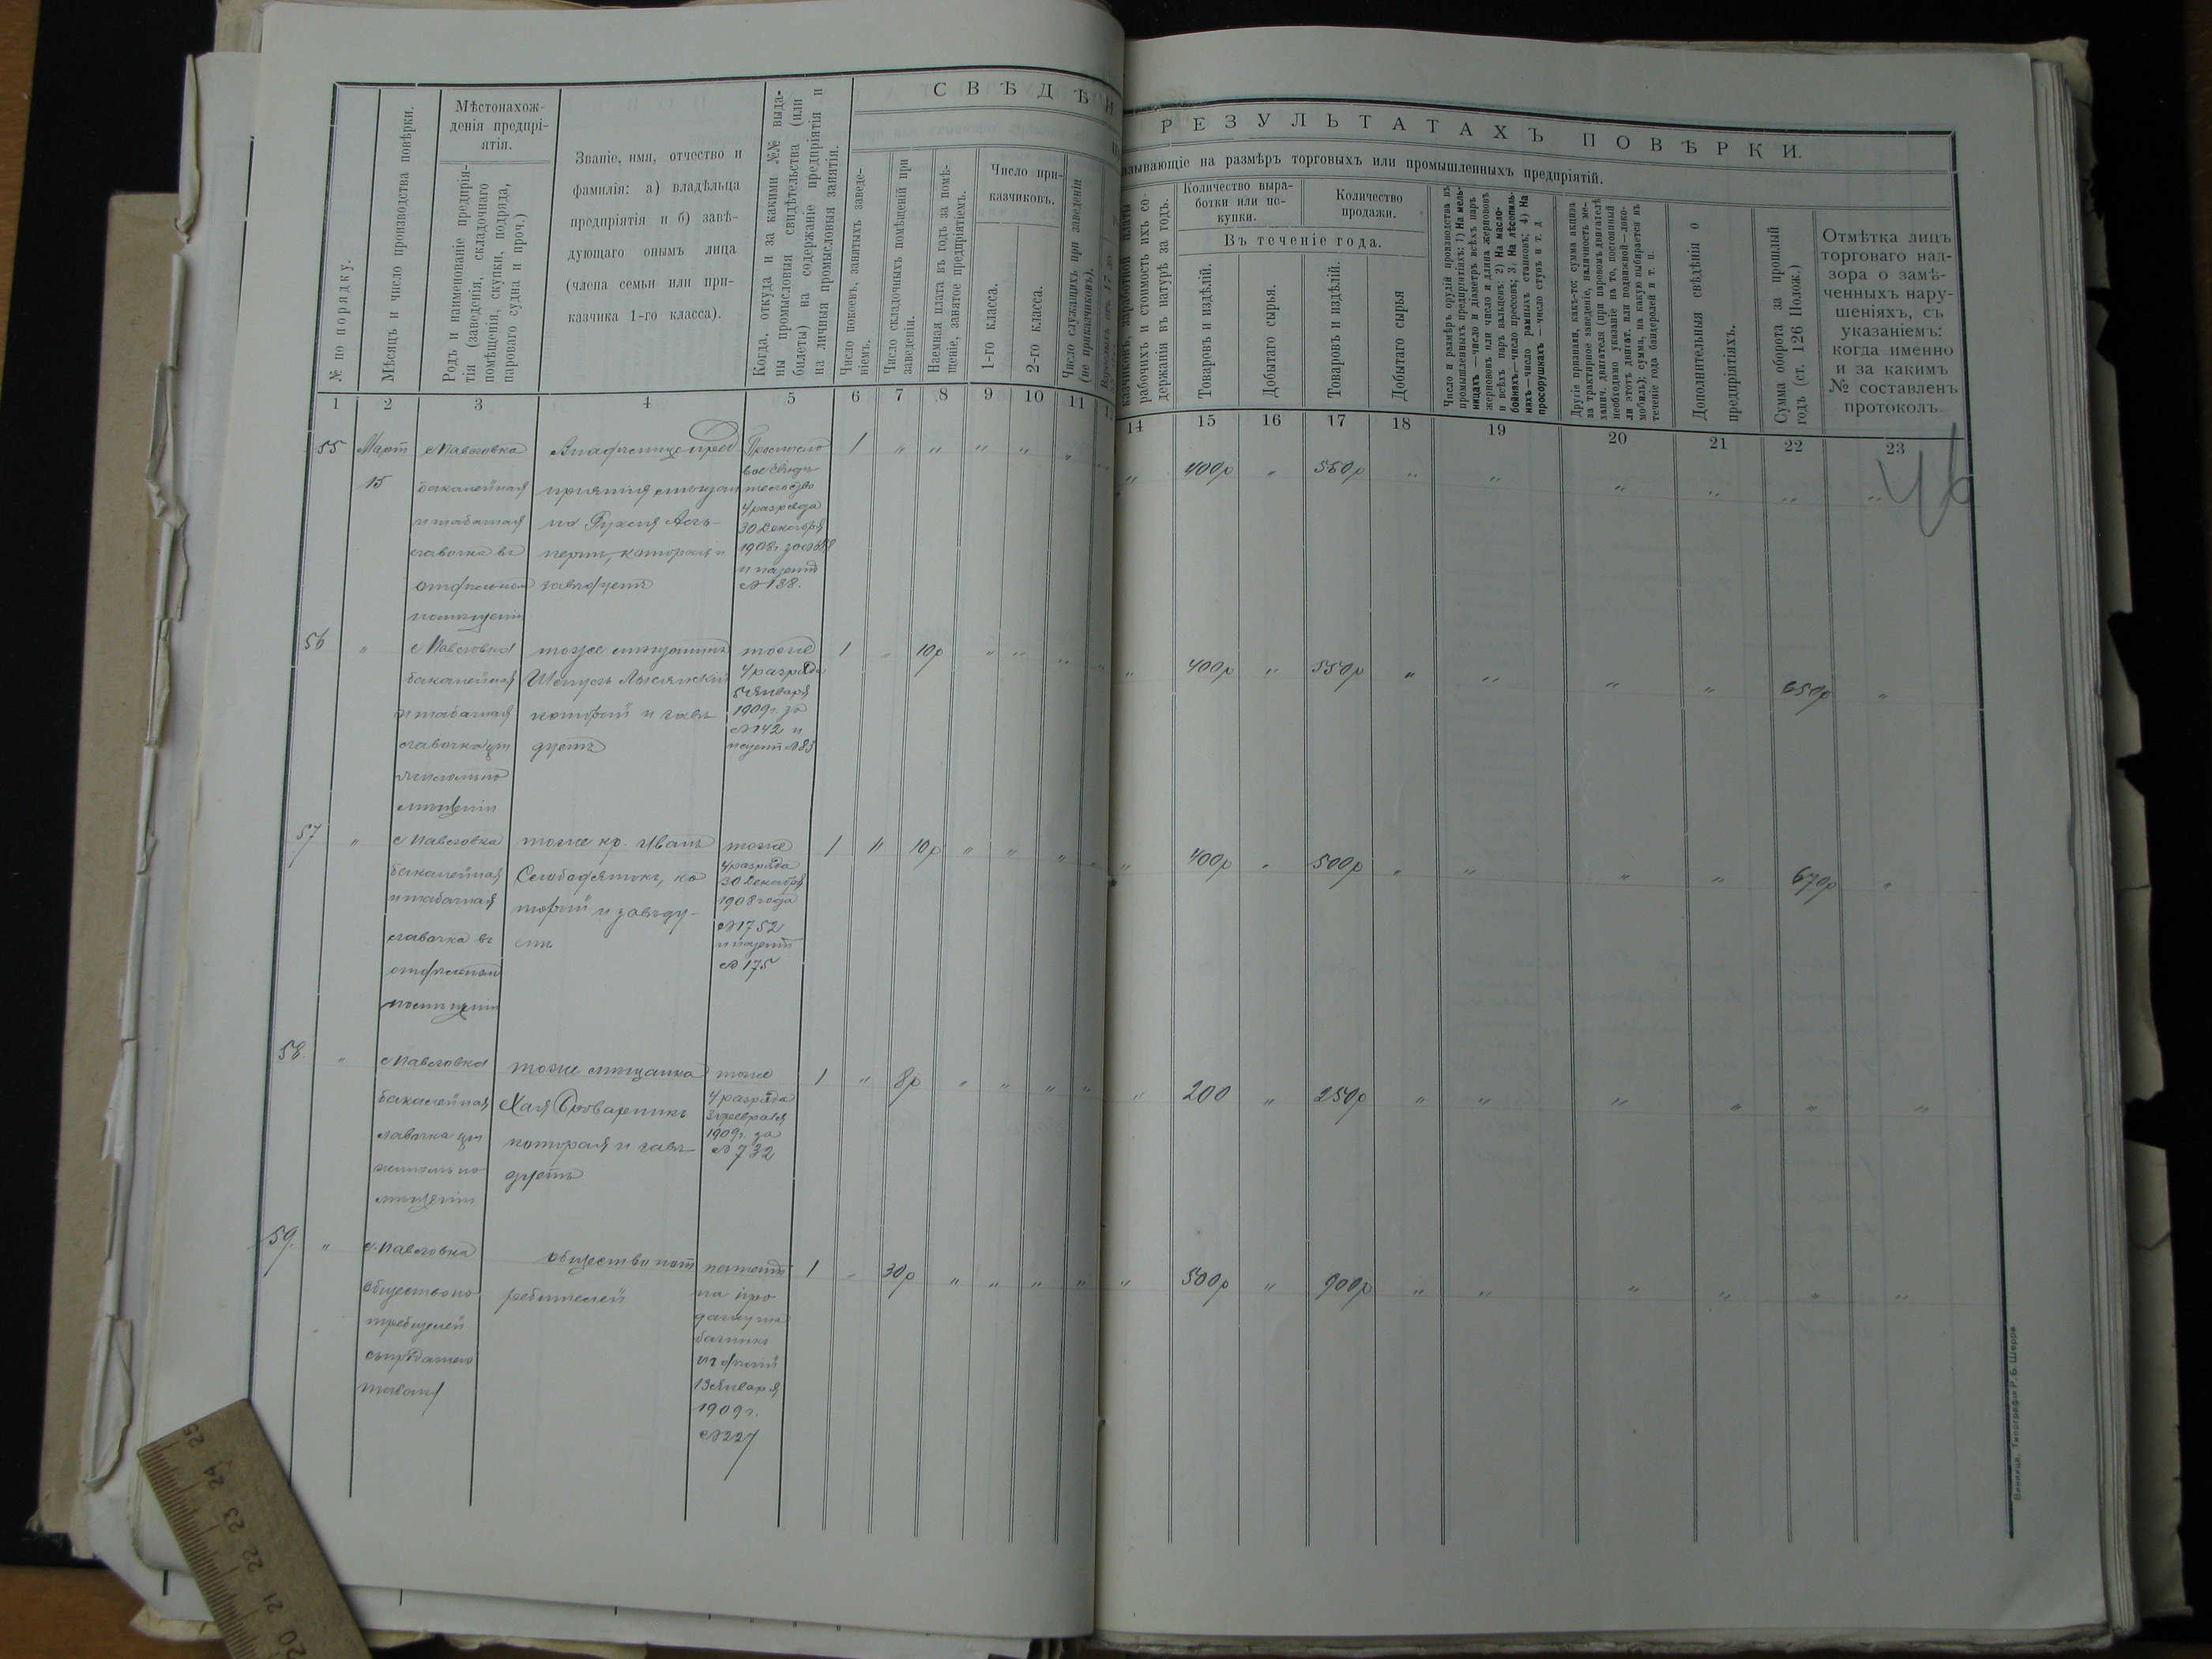 СВѢДѢН
РЕЗУЛЬТАТАХЪ ПОВѢРКИ.
азывающіе на размѣръ торговыхъ или промышленныхъ предпріятій.
№ по порядку.
Мѣсяцъ и число производства повѣрки.
Мѣстонахож-
денія предпрі-
ятія.
Родъ и наименованіе предпрія-
тія (заведенія, складочнаго
помѣщенія, скупки, подряда,
пароваго судна и проч.)
Званіе, имя, отчество и
фамилія: а) владѣльца
предпріятія и б) завѣ-
дующаго онымъ лица
(члена семьи или при-
казчика 1-го класса).
Когда, откуда и за какими №№ выда-
ны промысловыя свидѣтельства (или
билеты) на содержаніе предпріятія и
на личныя промысловыя занятія.
Число покоевъ, занятыхъ заведе-
ніемъ.
Число складочныхъ помѣщеній при
заведеніи.
Наемная плата въ годъ за помѣ-
щеніе, занятое предпріятіемъ.
Число при-
казчиковъ.
1-го класса.
2-го класса.
Число служащихъ при заведеніи
(не приказчиковъ).
рабочихъ и стоимость ихъ со-
держанія въ натурѣ за годъ.
Количество выра-
ботки или по-
купки.
Количество
продажи.
Въ теченіе года.
Товаровъ и издѣлій.
Добытаго сырья.
Товаровъ и издѣлій.
Добытаго сырья
Число и размѣръ орудій производства въ
промышленныхъ предпріятіяхъ: 1) На мель-
ницахъ—число и діаметръ всѣхъ паръ
жернововъ или число и длина жернововъ
и всѣхъ паръ вальцевъ; 2) На масло-
бойняхъ—число прессовъ; 3. На лѣсопиль-
няхъ—число рамныхъ станковъ; 4) На
просорушкахъ—число ступъ и т. д
Другіе признаки, какъ-то: сумма акциза
за трактирное заведеніе, наличность ме-
ханич. двигателя (при паровомъ двигателѣ
необходимо указаніе на то, постоянный
ли этотъ двигат. или подвижной—локо-
мобиль); сумма, на какую выбирается въ
теченіе года бандеролей и т. п.
Дополнительныя свѣдѣнія о
предпріятіяхъ.
Сумма оборота за прошлый
годъ (ст. 126 Полож.)
Отмѣтка лицъ
торговаго над-
зора о замѣ-
ченныхъ нару-
шеніяхъ, съ
указаніемъ:
когда именно
и за какимъ
№ составленъ
протоколъ.
1 2 3 4 5 6 7 8 9 10 11
14 15 16 17 18 19 20 21 22 23
46
55 Март 1 „ „ „ „ „ „ 400р „ 550р „ „ „ „ „ „
15
с Павловка
бакалейная
и табачная
лавочка въ
отдѣльном
помѣщеніи
которая и
завѣдуетъ
4 разряда
30 Декабря
1908г.
и патент
№ 138.
56 „ 1 „ 10р „ „ „ „ „ 400р „ 550р „ „ „ „ 650р „
с Павловка
бакалейная
и табачная
лавочка при
тоже мѣщанинъ
который и завѣ
дуетъ
тоже
4 разряда
5 Января
1909г. за
№ 142 и
патент № 83
57 „ 1 „ 10р „ „ „ „ „ 400р „ 500р „ „ „ „ 670р „
с Павловка
бакалейная
и табачная
лавочка въ
отдѣльном
помѣщеніи
тоже кр. Иванъ
Слободянюкъ, ко
торый и завѣду-
етъ
тоже
4 разряда
30 Декабря
1908 года
№ 1752
и патент
№ 175
58. „ 1 „ 8р „ „ „ „ „ 200 „ 250р „ „ „ „ „ „
с Павловка
бакалейная
лавочка при
жилом по
мѣщеніи
тоже мѣщанка
Хая
которая и завѣ-
дуетъ
тоже
4 разряда
3 февраля
1909г. за
№ 732
59. „ 1 „ 30р „ „ „ „ „ 500р „ 900р „ „ „ „ „ „
с. Павловка
общество по
требителей
общество пот
ребителей
патентъ
на про
дажу та
бачныхъ
издѣлій
13 Января
1909г.
№ 227
Винница, Типографія Р. Б. Шерра
20 21 22 23 24 25